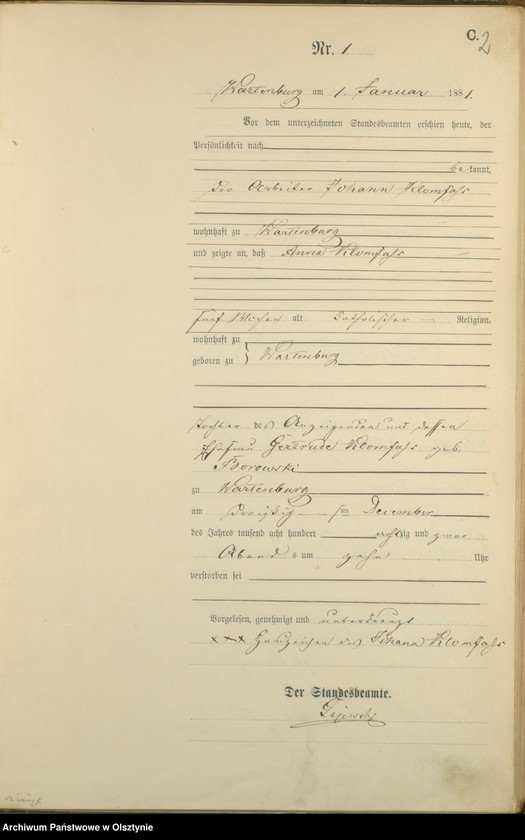 C.
2
Nr. 1
Wartenburg am 1. Januar 1881.
Vor dem unterzeichneten Standesbeamten erschien heute, der
Persönlichkeit nach
be kannt,
der Arbeiter Johann Klomfaß
wohnhaft zu Wartenburg
und zeigte an, daß Anna Klomfaß
fünf Wochen alt katholischer Religion,
wohnhaft zu
geboren zu } Wartenburg
Tochter des Anzeigenden und dessen
Ehefrau Gertrude Klomfaß geb.
Borowski
zu Wartenburg
am dreißig sten December
des Jahres tausend acht hundert achtzig und zwar
Abends um zehn Uhr
verstorben sei
Vorgelesen, genehmigt und unterkreuzt
xxx Handzeichen des Johann Klomfaß
Der Standesbeamte.
Archiwum Państwowe w Olsztynie